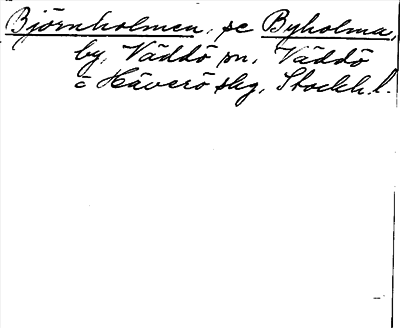 Björnholmen, se Byholma,
by, Väddö sn, Väddö
o Häverö skg, Stockh. l.